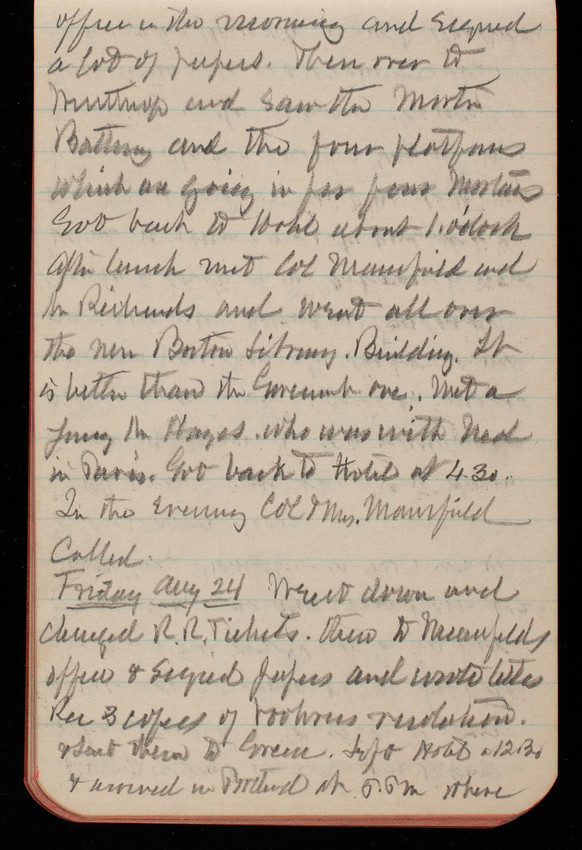 office in the morning and signed
a lot of papers. Then over to
Winthrop and saw the Mortar
Battery and the four platforms
which are going in for four Mortars
Got back to Hotel about 1. o'clock
After lunch met Col Mansfield and
Mr Richards and went all over
the new Boston Library. Building. It
is better than the Government one. Met a
young Mr Hayes. who was with Ned
in Paris. Got back to Hotel at 4.30.
In the Evening Col & Mrs. Mansfield
Called.
Friday Aug 24 Went down and
changed R.R. Tickets. then to Mansfields
office & Signed papers and wrote letters
Rec 3 copies of resolution.
& Sent them to Greene. Left Hotel 12.30
& arrived in Portland at 5 P m where